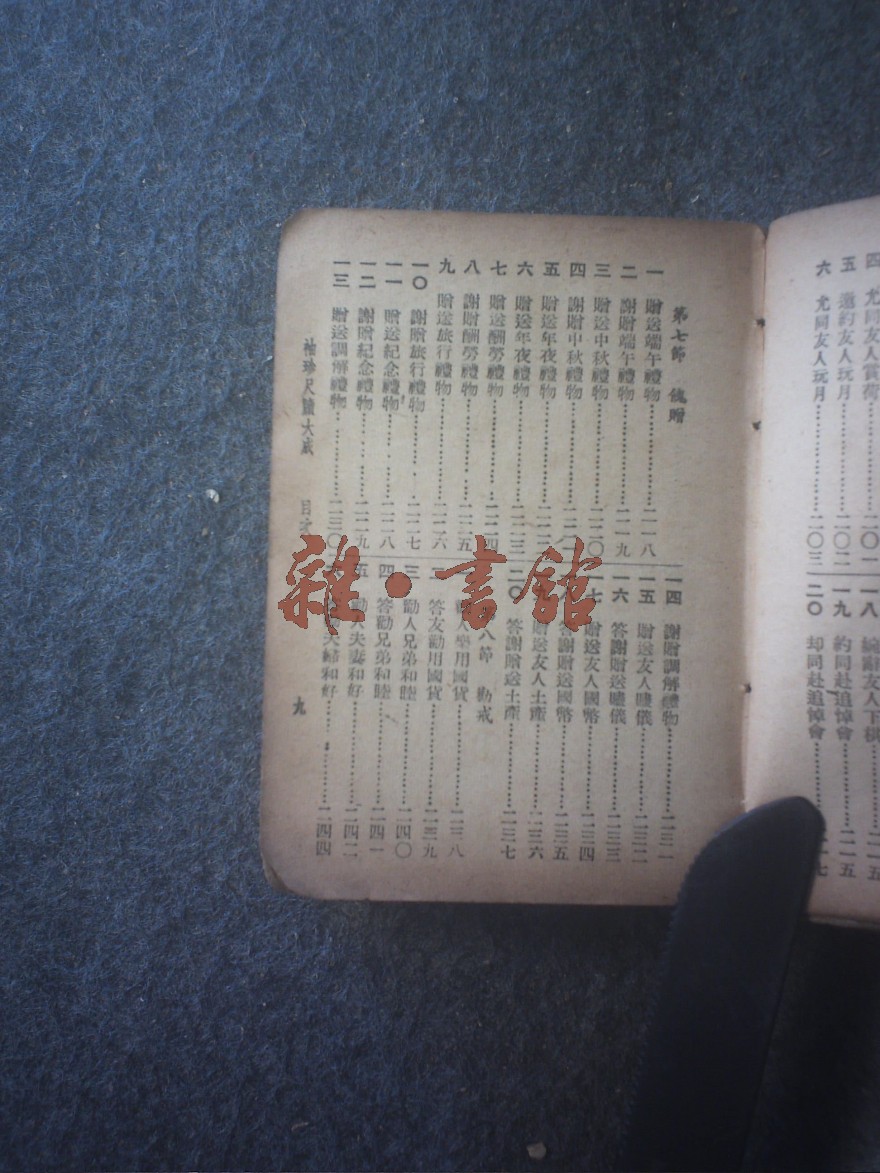 四 尤同友人賞荷……一〇二
五 邀約友人玩月……一〇二
六 尤同友人玩月……一〇三
一八 婉辭友人下棋……二一五
一九 約同赴追悼會……二一五
二〇 却同赴追悼會
第七節 餽贈
一 贈送端午禮物……二一八
二 謝贈端午禮物……二一九
三 贈送中秋禮物……二二〇
四 謝贈中秋禮物
五 贈送年夜禮物
六 贈送年夜禮物……二二三
七 贈送酬勞禮物……二二四
八 謝贈酬勞禮物……二二五
九 贈送旅行禮物……二二六
一〇 謝贈旅行禮物……二二七
一一 贈送紀念禮物……二二八
一二 謝贈紀念禮物……二二九
一三 贈送調解禮物……二三〇
一四 謝贈調解禮物……二三一
一五 贈送友人賻儀……二三二
一六 答謝贈送賻儀……二三三
一七 贈送友人國幣……二三四
答謝贈送國幣……二三五
贈送友人土產……二三六
二〇 答謝贈送土產……二三七
第八節 勸戒
勸人舉用國貨……二三八
二 答友勸用國貨……二三九
三 勸人兄弟和睦……二四〇
四 答勸兄弟和睦……二四一
五 勸人夫妻和好……二四二
夫婦和好……二四四
袖珍尺牘大成 目次 九
雜·書館